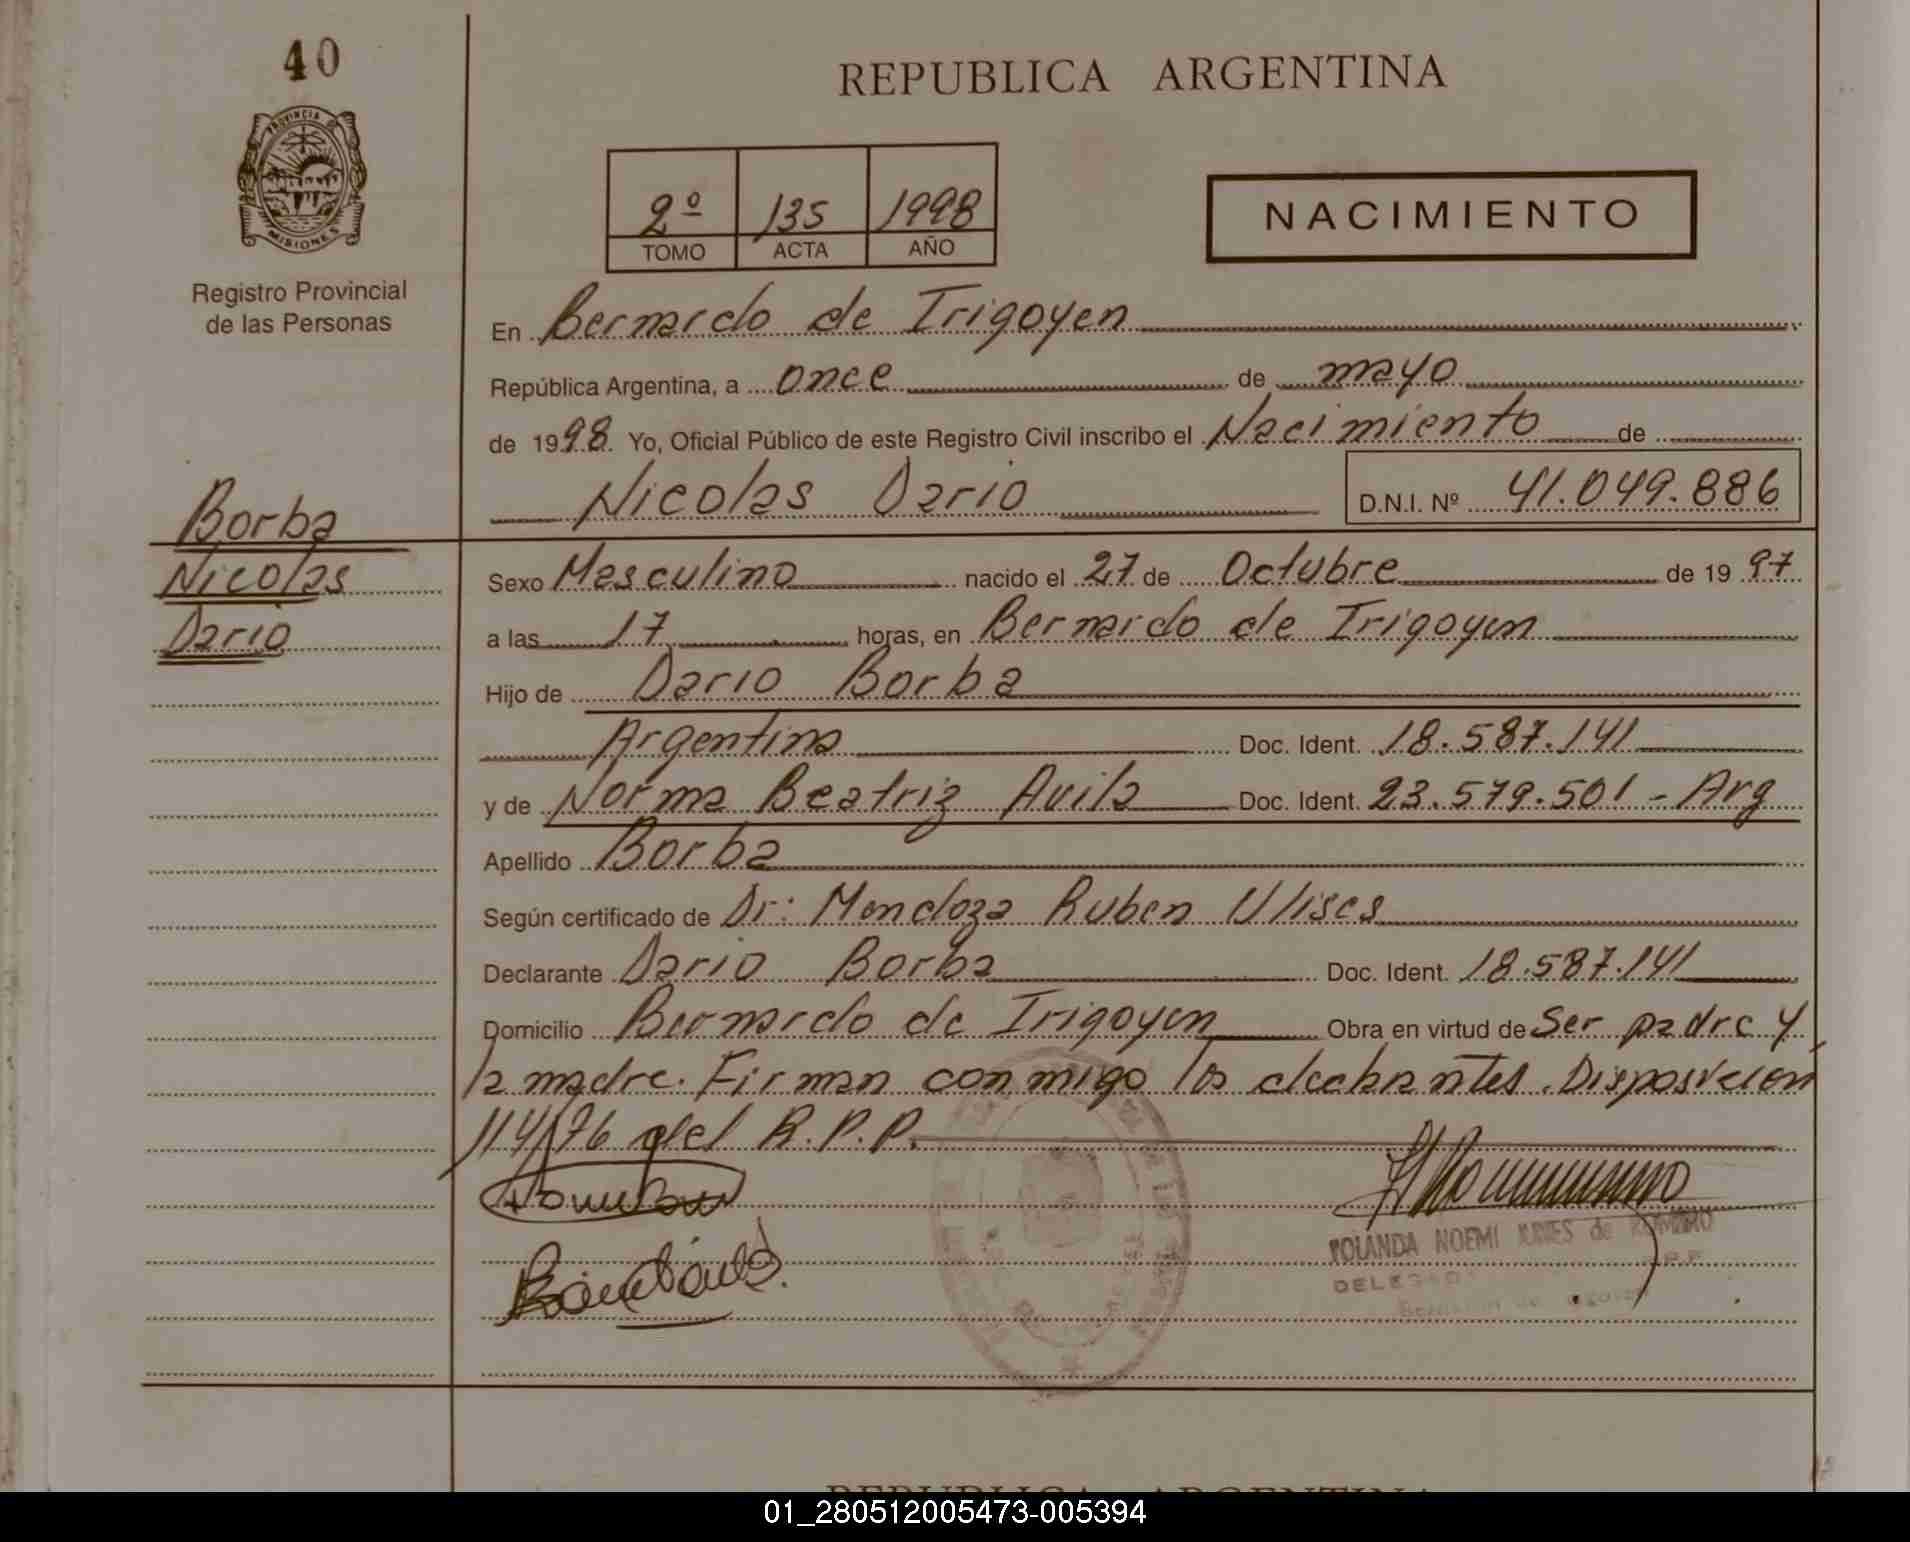 40
PROVINCIA DE
MISIONES
Registro Provincial
de las Personas
REPUBLICA ARGENTINA
2º 135 1998
TOMO ACTA AÑO
NACIMIENTO
En Bernardo de Irigoyen
República Argentina, a once de mayo
de 1998 Yo, Oficial Público de este Registro Civil inscribo el Nacimiento de
Nicolas Dario D.N.I. Nº 41.049.886
Borba
Nicolas
Dario
Sexo Masculino nacido el 27 de Octubre de 1997
a las 17 horas, en Bernardo de Irigoyen
Hijo de Dario Borba
Argentino Doc. Ident. 18.587.141
y de Norma Beatriz Avila Doc. Ident. 23.579.501 - Arg
Apellido Borba
Según certificado de Dr: Mendoza Ruben Ulises
Declarante Dario Borba Doc. Ident. 18.587.141
Domicilio Bernardo de Irigoyen Obra en virtud de Ser padre y
la madre. Firman conmigo los declarantes. Disposicion
114/76 del R.P.P.
YOLANDA NOEMI de
REPUBLICA ARGENTINA
01_280512005473-005394